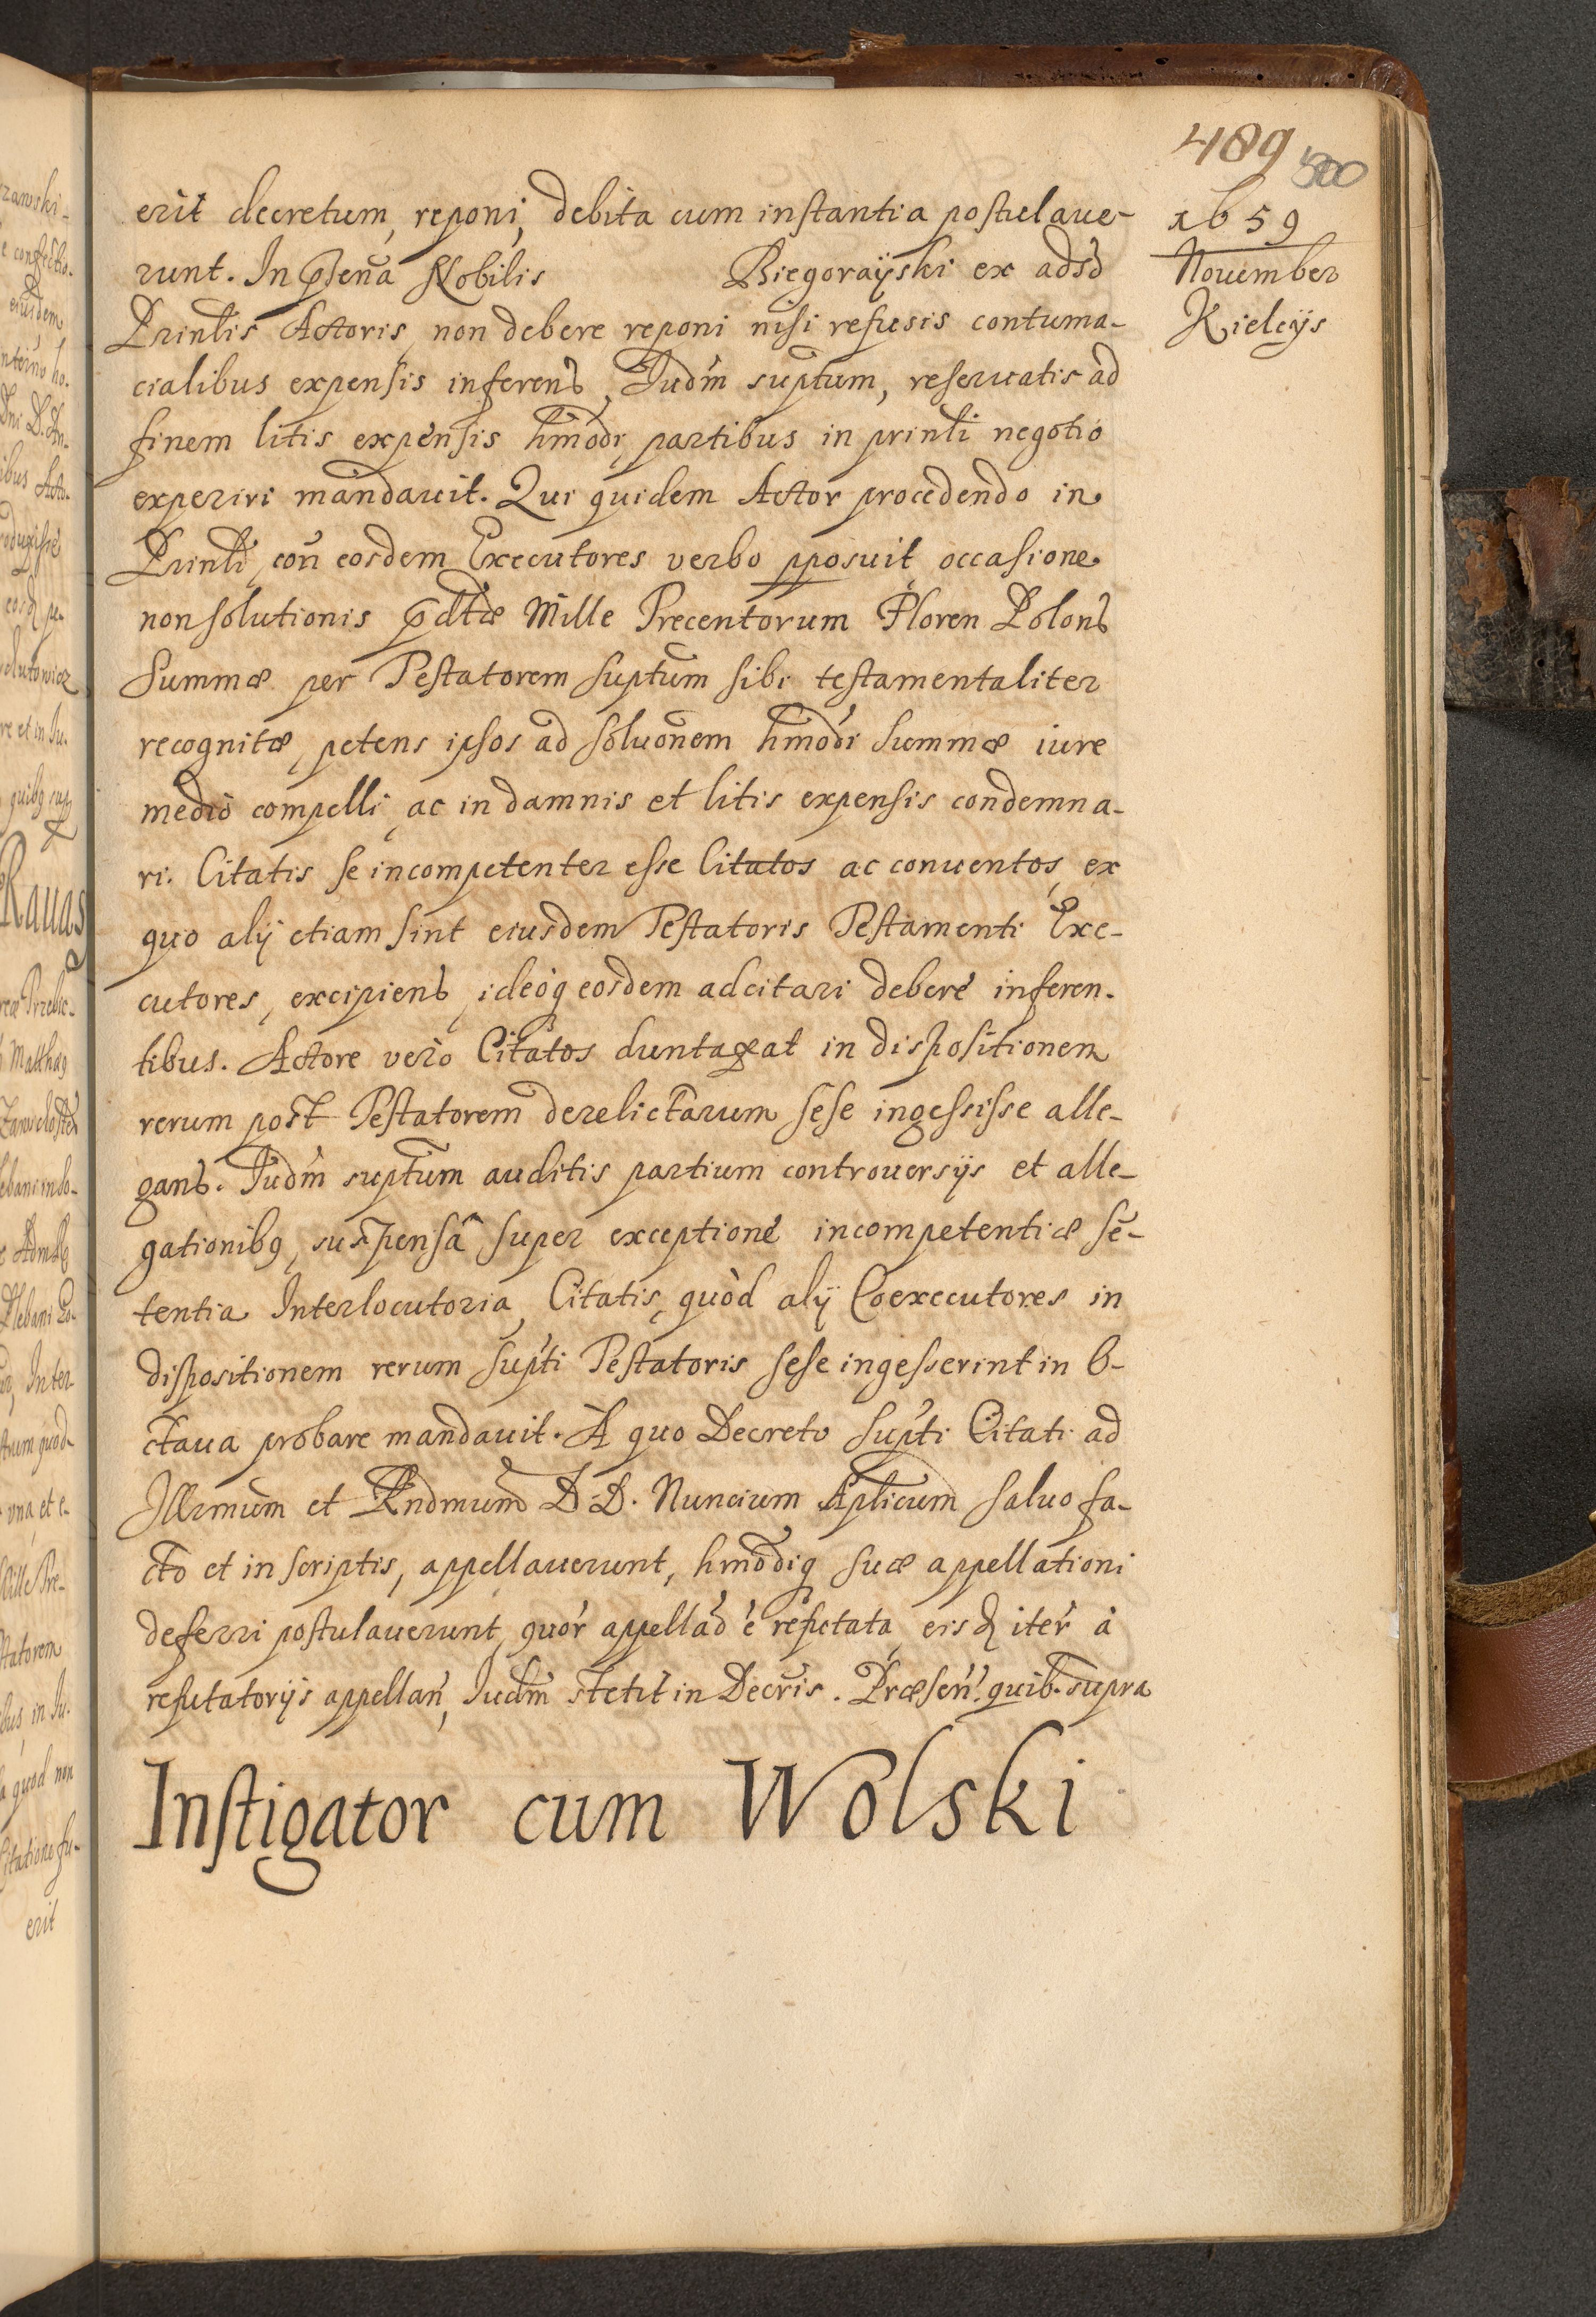 489
500
xb 59
November
Kielcijs
erit decretum, reponi, debita cum instantia postulaue-
runt. In pñena Nobilis Biegorayski ex adso
Prinlis Actoris, non debere reponi nisi refusis contuma-
cialibus expensis inferens, Iudm suptum, reseruatis ad
finem litis expensis hmodi, partibus in prinli negotio
experiri mandauit. Qui quidem Actor procedendo in
Prinli, con eosdem Executores verbo pposuit occasione
non solutionis pdtæ Mille Trecentorum Floren Polons
Summæ per Testatorem suptum sibi testamentaliter
recognitæ, petens ipsos ad soluonem hmodi summæ iure
medio compelli, ac in damnis et litis expensis condemna-
ri. Citatis se incompetenter esse Citatos ac conuentos, ex
quo alij etiam sint eiusdem Testatoris Testamenti Exe-
cutores, excipiens, ideoq eosdem adcitari debere inferen-
tibus. Actore vero Citatos duntaxat in dispositionem
rerum post Testatorem derelictarum sese ingessisse alle-
gans. Iudm suptum auditis partium controuersijs et alle-
gationibq, suspensâ super exceptione incompetentiæ sē-
tentia Interlocutoria, Citatis, quòd alij Coexecutores in
dispositionem rerum supti Testatoris sese ingesserint in O-
ctaua probare mandauit. A quo Decreto supti Citati ad
Illrmum et Rndmum D. D. Nuncium Aplicum saluo fa-
cto et in scriptis, appellauerunt, hmodiq suæ appellationi
deferri postulauerunt, quor appellao è refutata, eisq iter à
refutatorijs appellan, Iudm stetit in Decris. Præsen. quib. supra
Instigator cum Wolski